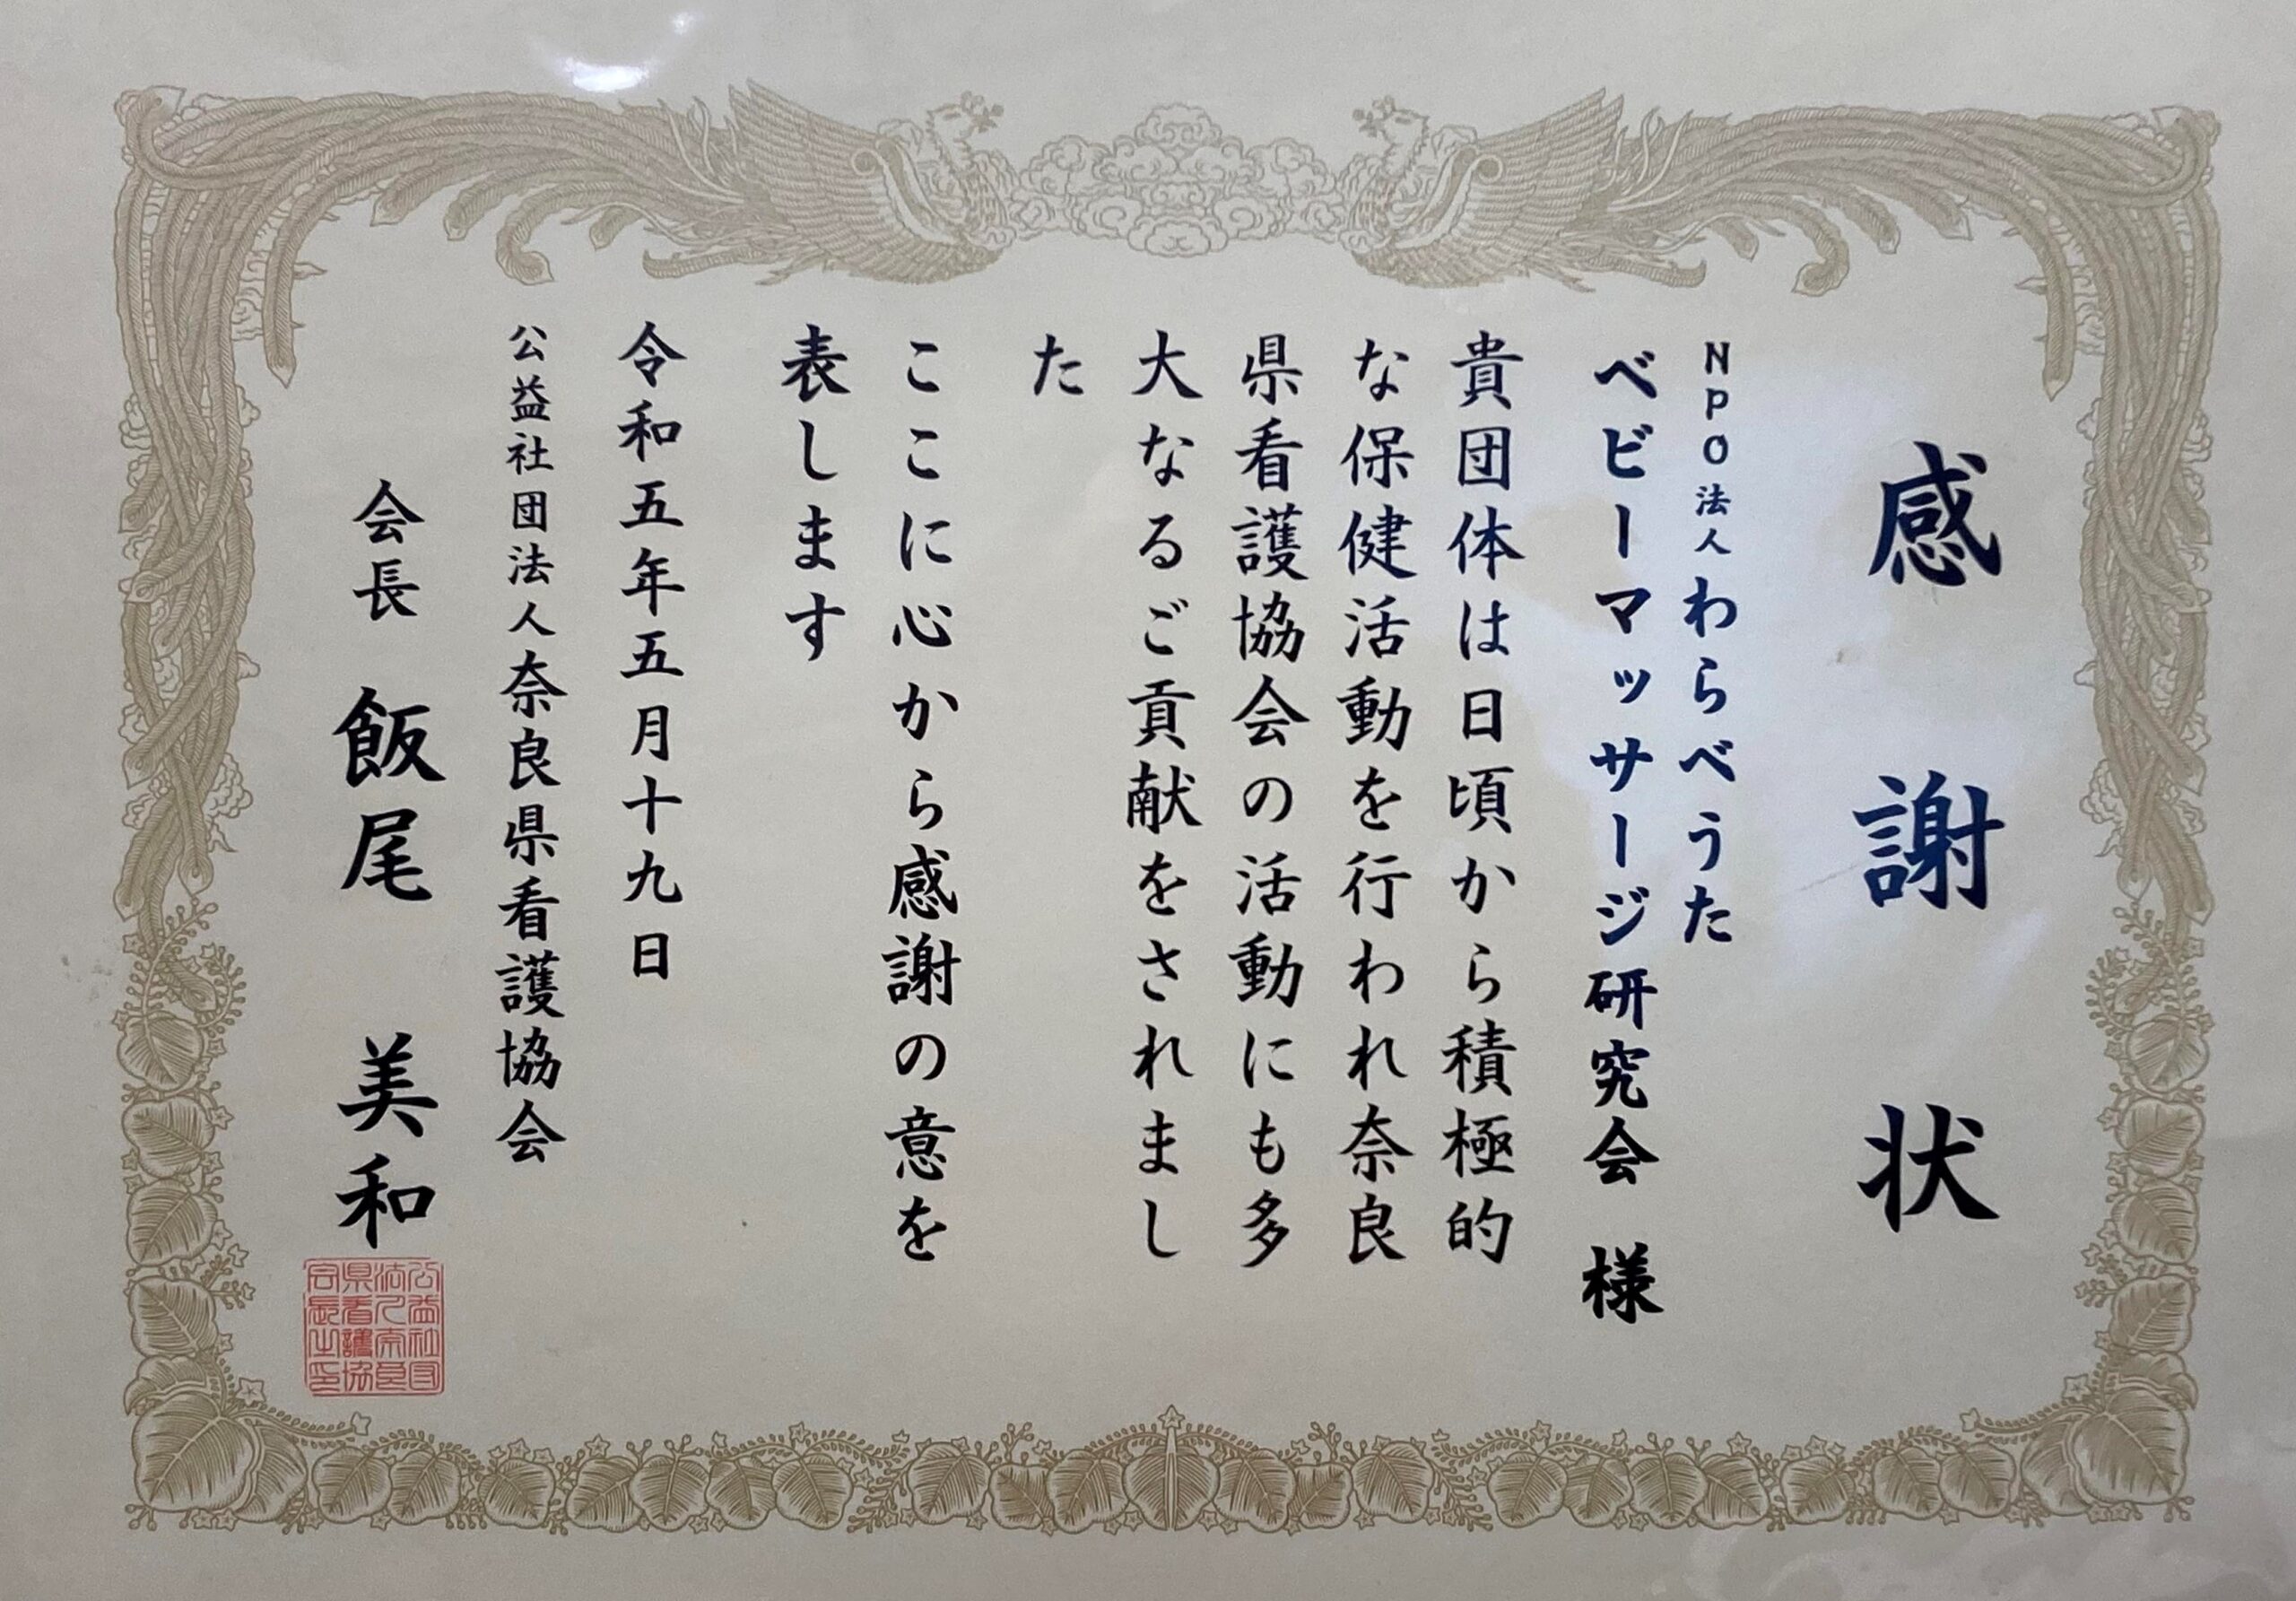 感謝状
NPO法人わらべうた
ベビーマッサージ研究会 様
貴団体は日頃から積極的
な保健活動を行われ奈良
県看護協会の活動にも多
大なるご貢献をされまし
た
ここに心から感謝の意を
表します
令和五年五月十九日
公益社団法人奈良県看護協会
会長 飯尾 美和
公益社団
法人奈良
県看護協
会長之印